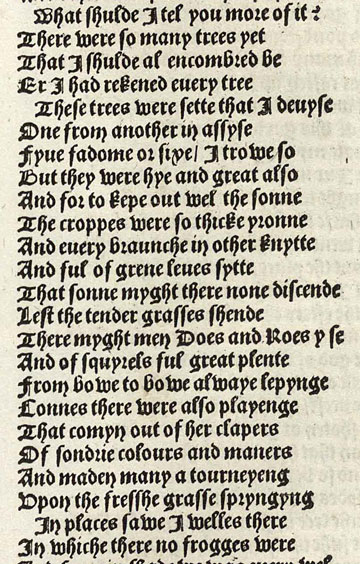 What shulde I tel you more of it?
There were so many trees yet
That I shulde al encombred be
Er I had rekened euery tree
These trees were sette that I deuyse
One from another in assyse
Fyue fadome or sixe/ I trowe so
But they were hye and great also
And for to kepe out wel the sonne
The croppes were so thicke yronne
And euery braunche in other knytte
And ful of grene leues sytte
That sonne myght there none discende
Lest the tender grasses shende
There myght men Does and Roes yse
And of squyrels ful great plente
From bowe to bowe alwaye lepynge
Connes there were also playenge
That comyn out of her clapers
Of sondrie colours and maners
And maden many a tourneyeng
Vpon the fresshe grasse spryngyng
In places sawe I welles there
In whiche there no frogges were